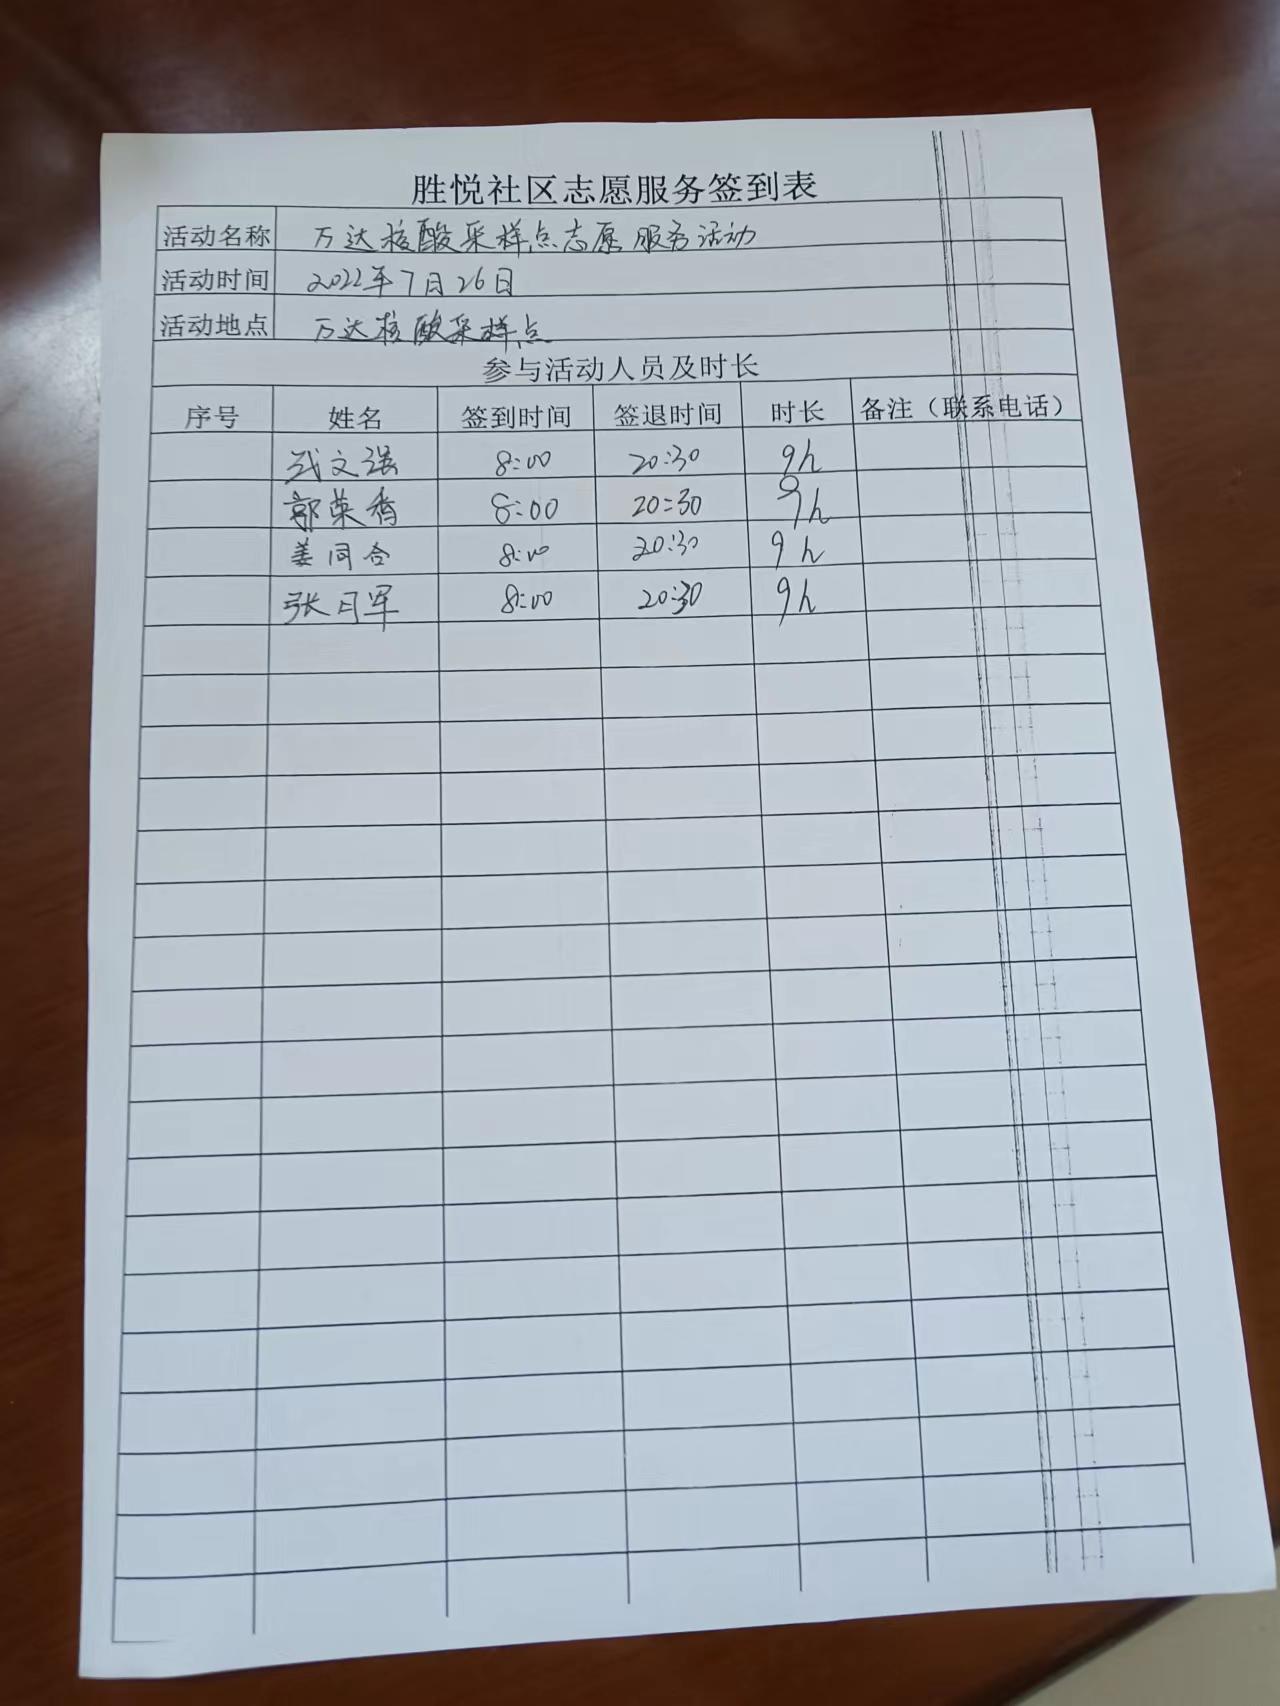 胜悦社区志愿服务签到表
活动名称 万达核酸采样点志愿服务活动
活动时间 2022年7月26日
活动地点 万达核酸采样点
参与活动人员及时长
序号 姓名 签到时间 签退时间 时长 备注（联系电话）
文强 8:00 20:30 9h
郭荣香 8:00 20:30 9h
姜同合 8:00 20:30 9h
张日军 8:00 20:30 9h